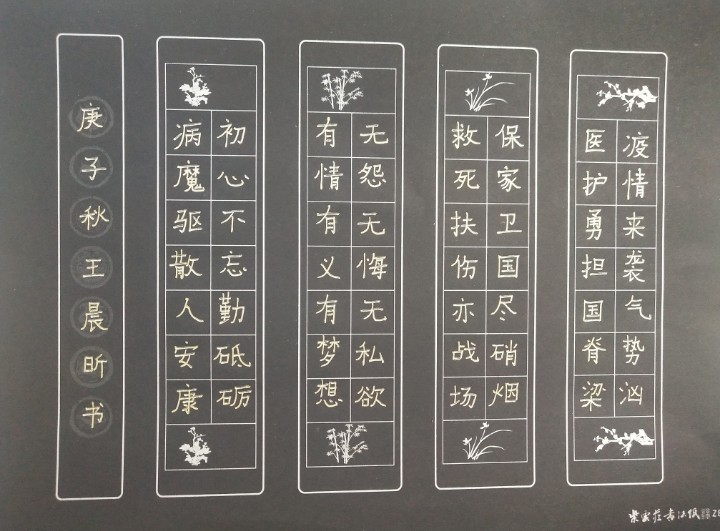 疫情来袭气势汹
医护勇担国脊梁
保家卫国尽硝烟
救死扶伤亦战场
无怨无悔无私欲
有情有义有梦想
初心不忘勤砥砺
病魔驱散人安康
庚子秋王晨昕书